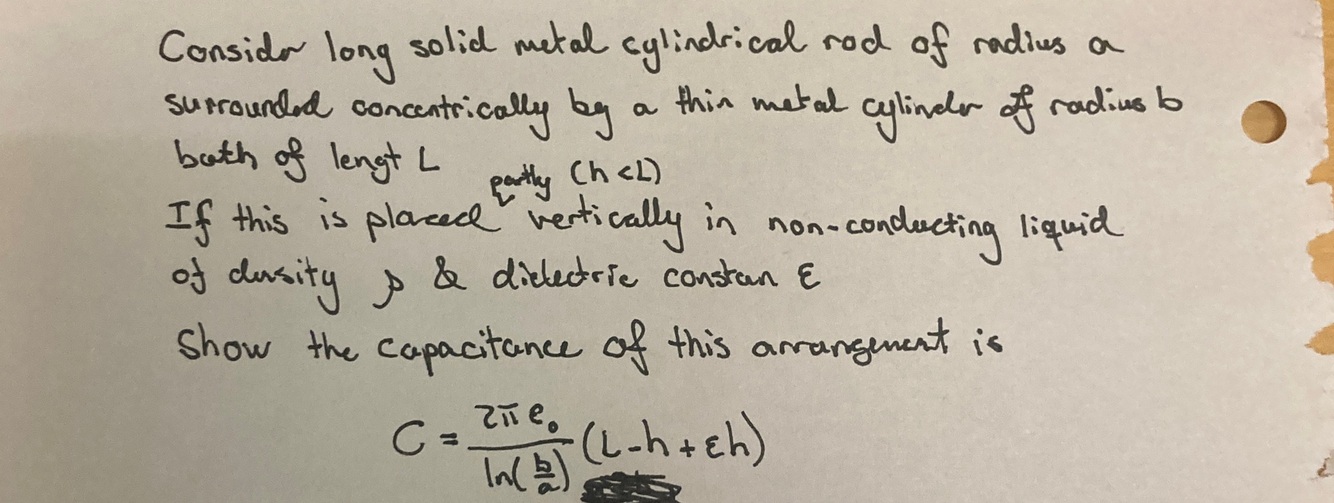 Consider long solid metal cylindrical rod of radius a
surrounded concentrically by a thin metal cylinder of radius b
both of lengt L
partly (h<L)
If this is placed vertically in non-conducting liquid
of density ρ & dielectric constan ε
Show the capacitance of this arrangement is
C = 2π e₀ / ln(b/a) (L-h+εh)